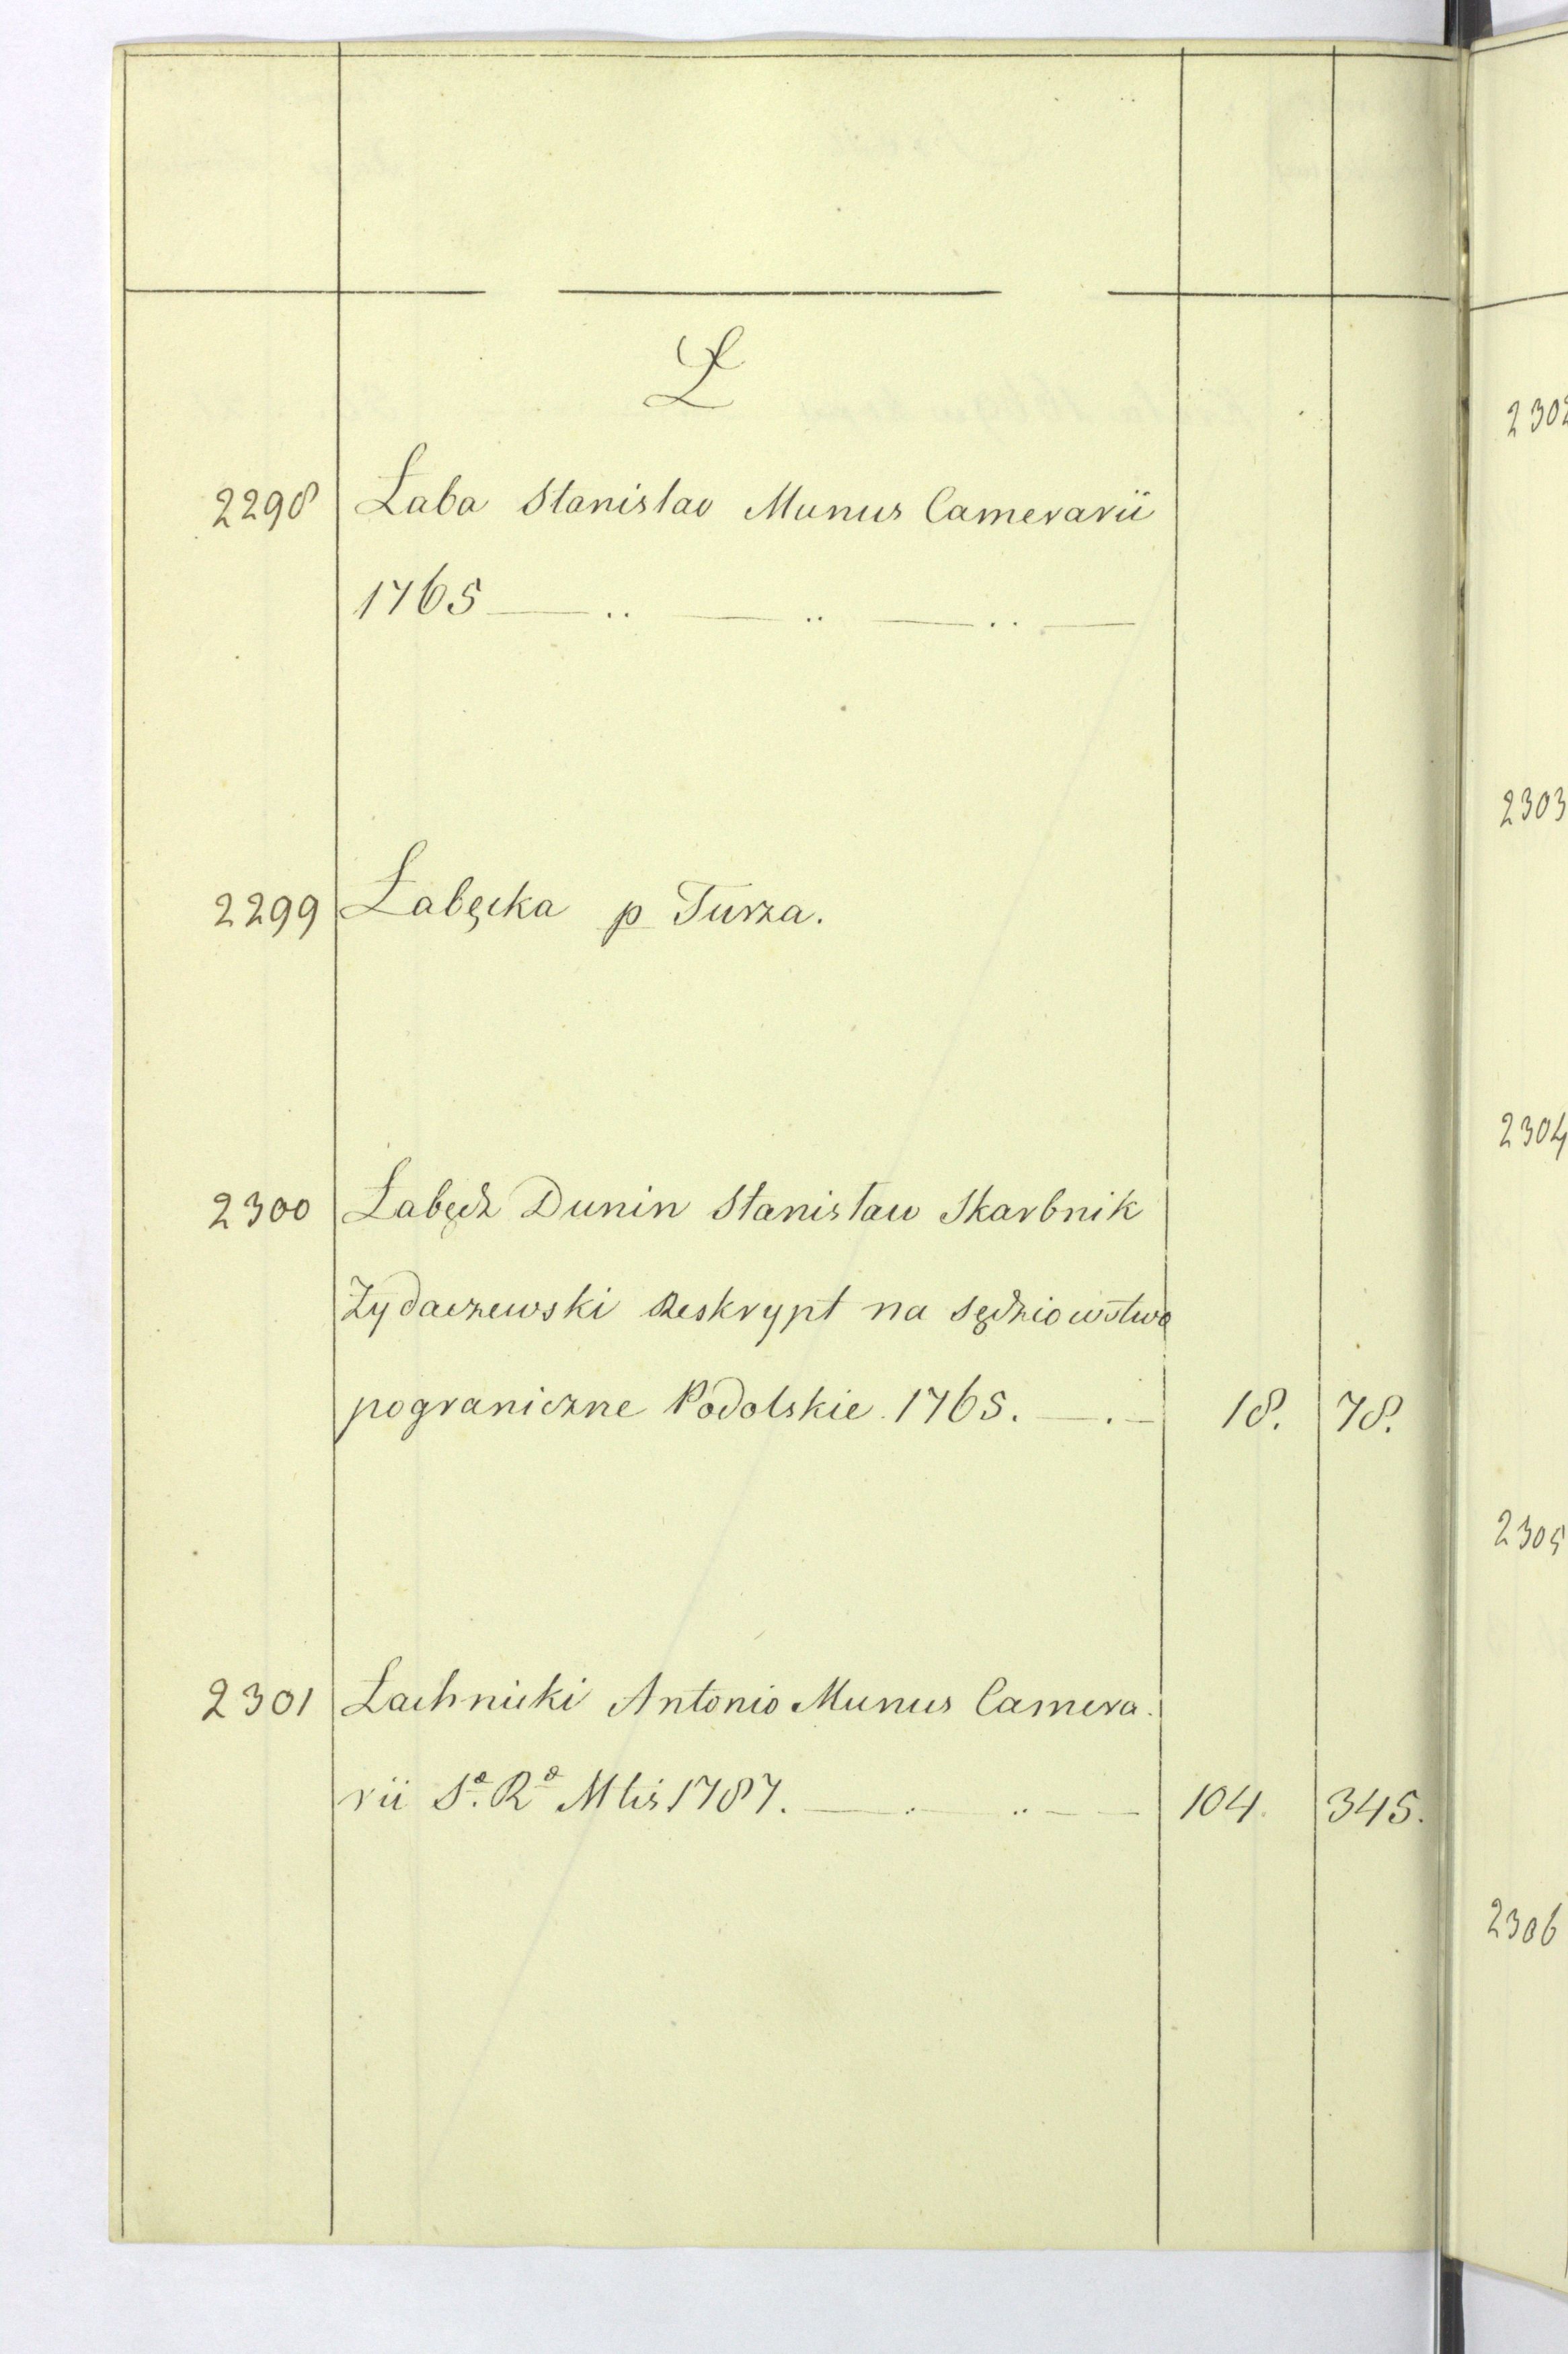 Ł
2298 Łaba Stanislao Munus Camerarii
1765 — .. — .. — .. —
2299 Łabęcka p Turza.
2300 Łabędz Dunin Stanisław Skarbnik
Żydaczewski Reskrypt na Sędziowstwo
pograniczne Podolskie 1765. — . — 18. 78.
2301 Łachnicki Antonio Munus Camera.
rii Sᵃ. Rᵃ Mtis 1787. — . — .. — — 104. 345.
2302
2303
2304
2305
2306